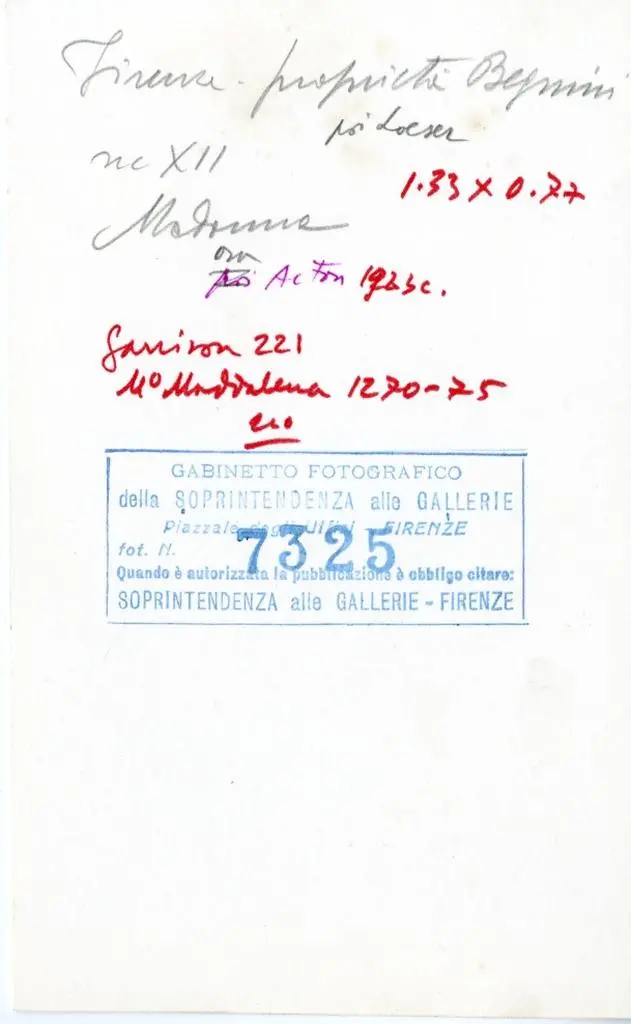 Firenze - proprietà Begnini
poi Loeser
sec XII
1.33 x 0.77
Madonna
ora
poi Acton 1923c.
Garrison 221
Mº Maddalena 1270-75
GABINETTO FOTOGRAFICO
della SOPRINTENDENZA alle GALLERIE
Piazzale degli Uffizi FIRENZE
fot. N. 7325
Quando è autorizzata la pubblicazione è obbligo citare:
SOPRINTENDENZA alle GALLERIE - FIRENZE